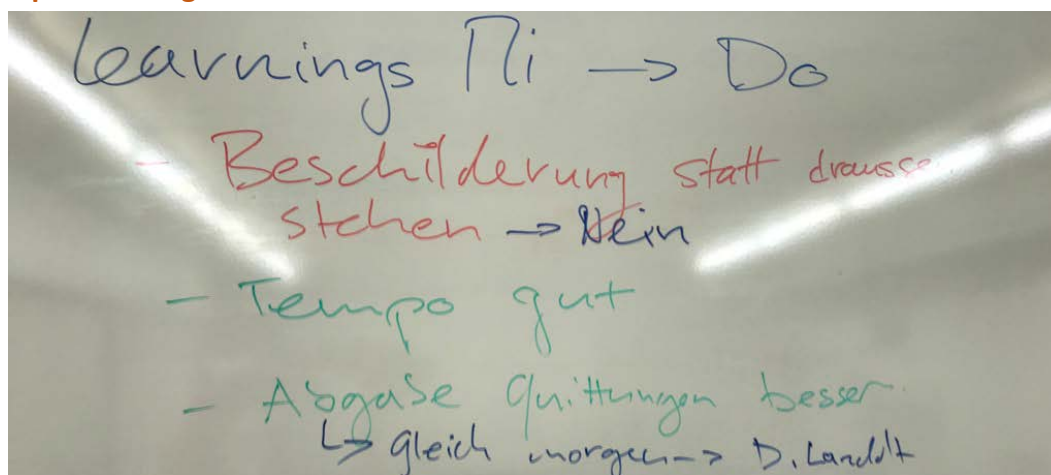 Learnings Mi → Do
- Beschilderung statt drausse
stehen → Nein
- Tempo gut
- Abgabe Quittungen besser
↳ gleich morgen → D. Landolt